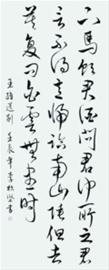 下馬飲君酒問君何所之君
言不得意歸臥南山陲但去
莫復問白雲無盡時
王維送別 壬辰年 書